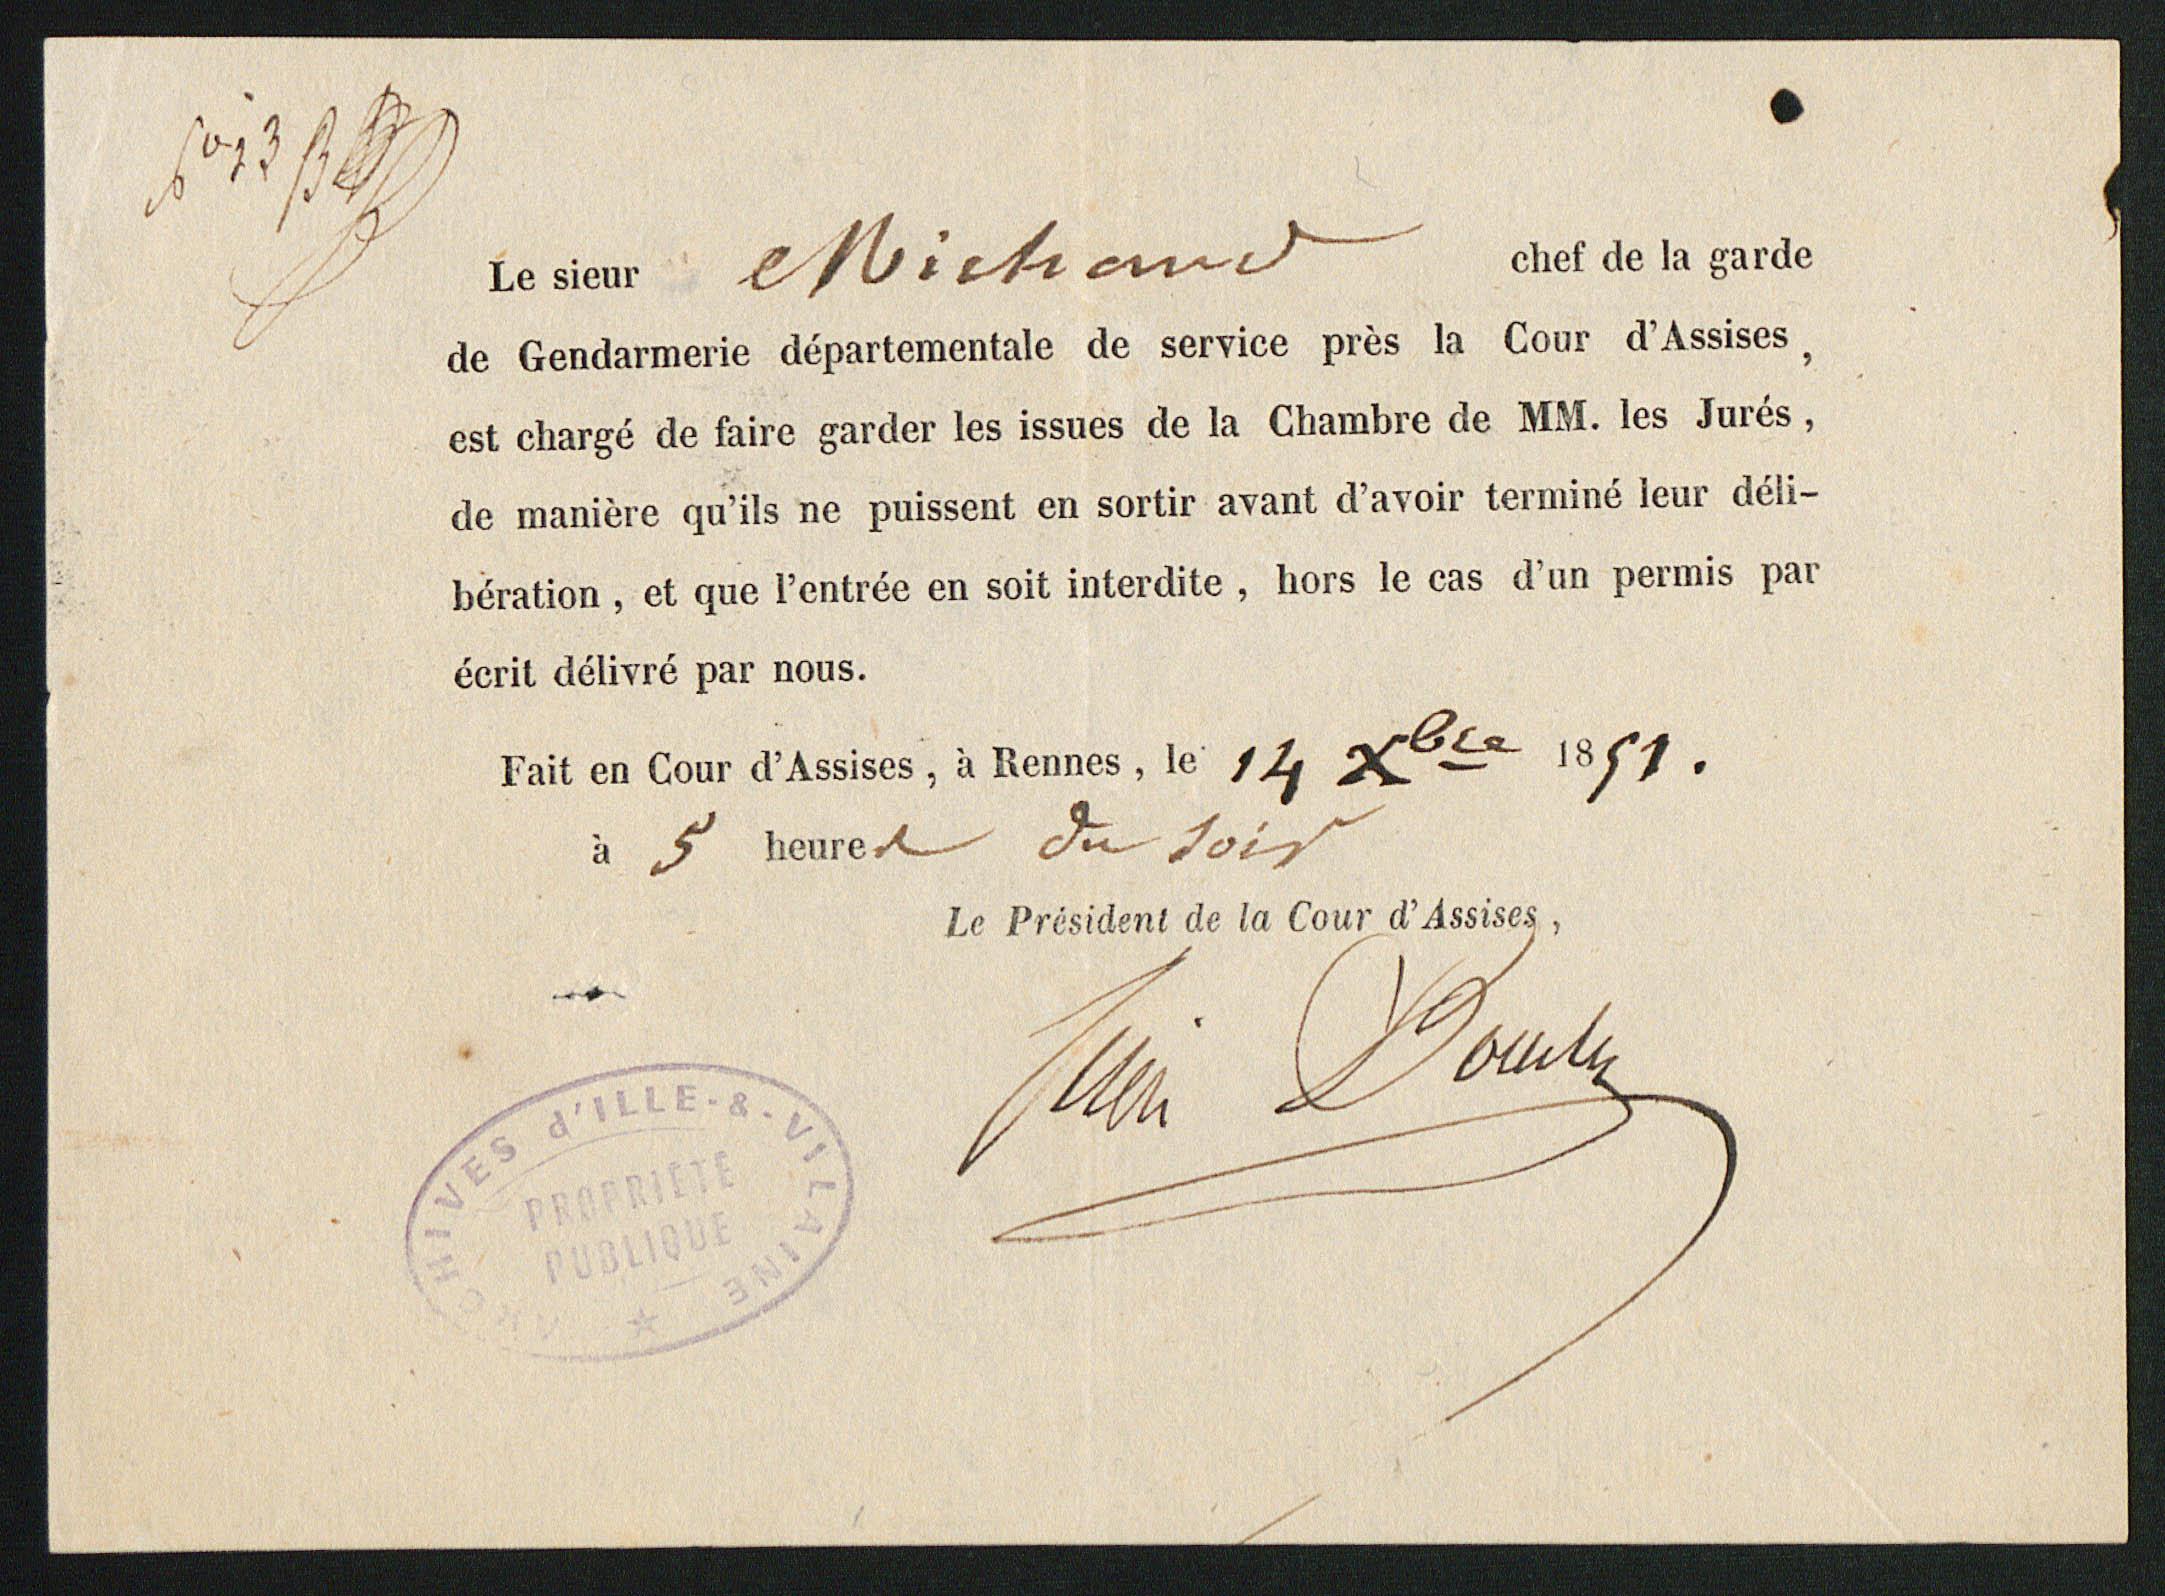 Le sieur Michaud chef de la garde
de Gendarmerie départementale de service près la Cour d'Assises,
est chargé de faire garder les issues de la Chambre de MM. les Jurés,
de manière qu'ils ne puissent en sortir avant d'avoir terminé leur déli-
bération, et que l'entrée en soit interdite, hors le cas d'un permis par
écrit délivré par nous.
Fait en Cour d'Assises, à Rennes, le 14 Xbre 1851.
à 5 heures du soir
Le Président de la Cour d'Assises,
ARCHIVES d'ILLE-&-VILAINE
PROPRIÉTÉ
PUBLIQUE